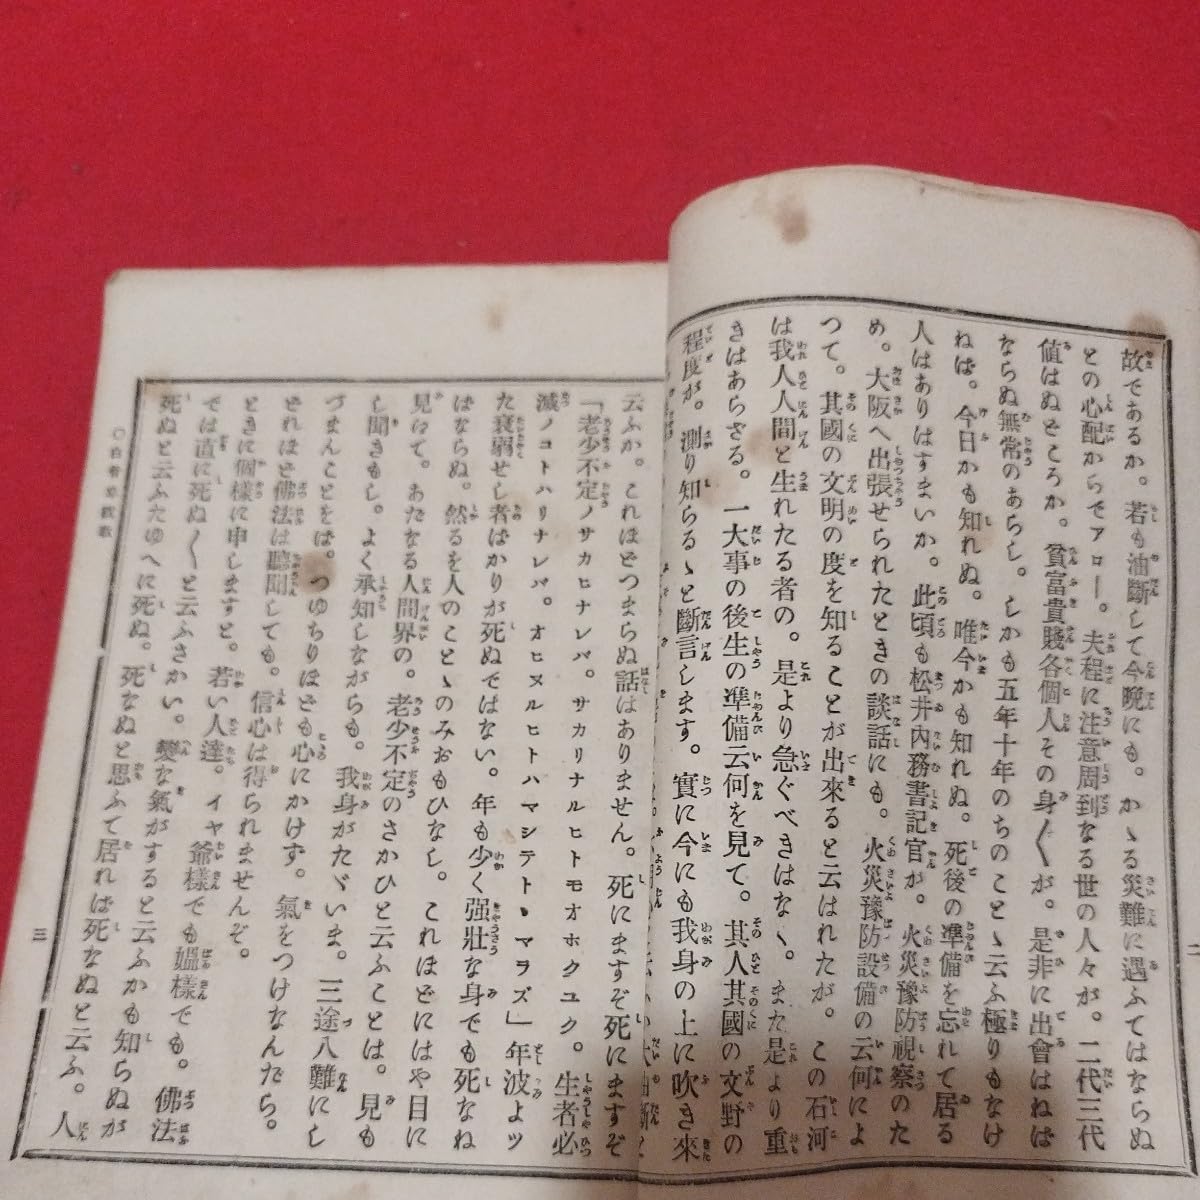 故であるか。若も油斷して今晩にも。かゝる災難に遇ふてはならぬ
との心配からでアロー。夫程に注意周到なる世の人々が。二代三代
値はぬどころか。貧富貴賤各個人その身〱が。是非に出會はねば
ならぬ無常のあらし。しかも五年十年のちのことゝ云ふ極りもなけ
ねば。今日かも知れぬ。唯今かも知れぬ。死後の準備を忘れて居る
人はありはすまいか。此頃も松井内務書記官が。火災豫防視察のた
め。大阪へ出張せられたときの談話にも。火災豫防設備の云何によ
つて。其國の文明の度を知ることが出來ると云はれたが。この石河
は我人人間と生れたる者の。是より急ぐべきはなく。また是より重
きはあらざる。一大事の後生の準備云何を見て。其人其國の文野の
程度が。測り知らるゝと斷言します。實に今にも我身の上に吹き來
云ふか。これほどつまらぬ話はありません。死にますぞ死にますぞ
「老少不定ノサカヒナレバ。サカリナルヒトモオホクユク。生者必
滅ノコトハリナレバ。オヒヌルヒトハマシテトヽマラズ」年波よッ
た衰弱せし者ばかりが死ぬではない。年も少く强壯な身でも死なね
ばならぬ。然るを人のことゝのみおもひなし。これほどにはや目に
見にて。あだなる人間界の。老少不定のさかひと云ふことは。見も
し聞きもし。よく承知しながらも。我身がたゞいま。三途八難にし
づまんことをば。つゆちりほども心にかけず。氣をつけなんだら。
どれほど佛法は聽聞しても。信心は得られませんぞ。
ときに個樣に申しますと。若い人達。イヤ爺樣でも媼樣でも。佛法
では直に死ぬ〱と云ふさかい。變な氣がすると云ふかも知らぬが
死ぬと云ふたゆへに死ぬ。死なぬと思ふて居れば死なぬと云ふ。人
三
二